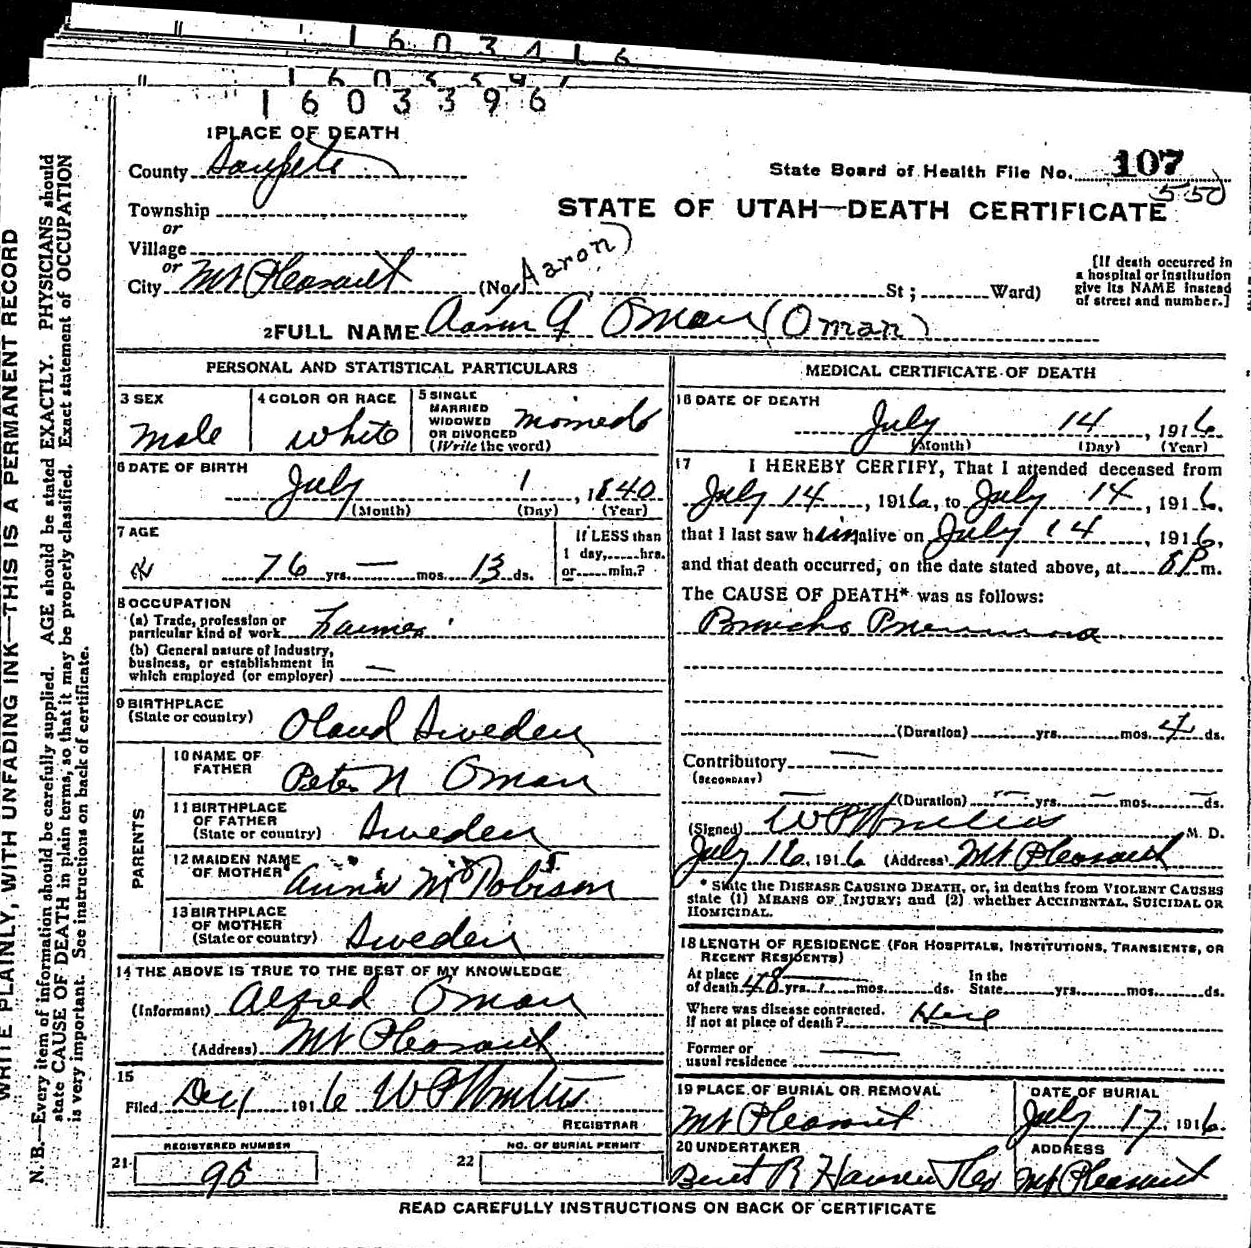 1603416
1603397
1603396
1 PLACE OF DEATH
County Sanpete
State Board of Health File No. 107
550
Township
or
STATE OF UTAH—DEATH CERTIFICATE
Village
or
City Mt Pleasant (No. Aaron) St; Ward)
[If death occurred in
a hospital or institution
give its NAME instead
of street and number.]
2 FULL NAME Aaron G Oman (Oman)
PERSONAL AND STATISTICAL PARTICULARS
3 SEX
Male
4 COLOR OR RACE
White
5 SINGLE
MARRIED
WIDOWED
OR DIVORCED
(Write the word)
6 DATE OF BIRTH
July 1, 1840
(Month) (Day) (Year)
7 AGE
76 yrs. — mos. 13 ds.
If LESS than
1 day, hrs.
or min.?
8 OCCUPATION
(a) Trade, profession or
particular kind of work Farmer
(b) General nature of industry,
business, or establishment in
which employed (or employer) —
9 BIRTHPLACE
(State or country) Oland Sweden
PARENTS
10 NAME OF
FATHER Peter N Oman
11 BIRTHPLACE
OF FATHER
(State or country) Sweden
12 MAIDEN NAME
OF MOTHER Anna
13 BIRTHPLACE
OF MOTHER
(State or country) Sweden
14 THE ABOVE IS TRUE TO THE BEST OF MY KNOWLEDGE
(Informant) Alfred Oman
(Address) Mt Pleasant
15
Filed 1916
REGISTRAR
REGISTERED NUMBER
21
NO. OF BURIAL PERMIT
22
MEDICAL CERTIFICATE OF DEATH
16 DATE OF DEATH
July 14, 1916
(Month) (Day) (Year)
17 I HEREBY CERTIFY, That I attended deceased from
July 14, 1916, to July 14, 1916,
that I last saw him alive on July 14, 1916,
and that death occurred, on the date stated above, at 8 P m.
The CAUSE OF DEATH* was as follows:
Broncho Pneumonia
(Duration) yrs. mos. 4 ds.
Contributory —
(SECONDARY)
(Duration) — yrs. — mos. — ds.
(Signed) M. D.
July 16, 1916 (Address) Mt Pleasant
* State the DISEASE CAUSING DEATH, or, in deaths from VIOLENT CAUSES
state (1) MEANS OF INJURY; and (2) whether ACCIDENTAL, SUICIDAL OR
HOMICIDAL.
18 LENGTH OF RESIDENCE (FOR HOSPITALS, INSTITUTIONS, TRANSIENTS, OR
RECENT RESIDENTS)
At place
of death 48 yrs. mos. ds.
In the
State yrs. mos. ds.
Where was disease contracted,
if not at place of death? Here
Former or
usual residence
19 PLACE OF BURIAL OR REMOVAL
Mt Pleasant
DATE OF BURIAL
July 17, 1916
20 UNDERTAKER
ADDRESS
Mt Pleasant
READ CAREFULLY INSTRUCTIONS ON BACK OF CERTIFICATE
WRITE PLAINLY, WITH UNFADING INK—THIS IS A PERMANENT RECORD
N. B.—Every item of information should be carefully supplied. AGE should be stated EXACTLY. PHYSICIANS should
state CAUSE OF DEATH in plain terms, so that it may be properly classified. Exact statement of OCCUPATION
is very important. See instructions on back of certificate.